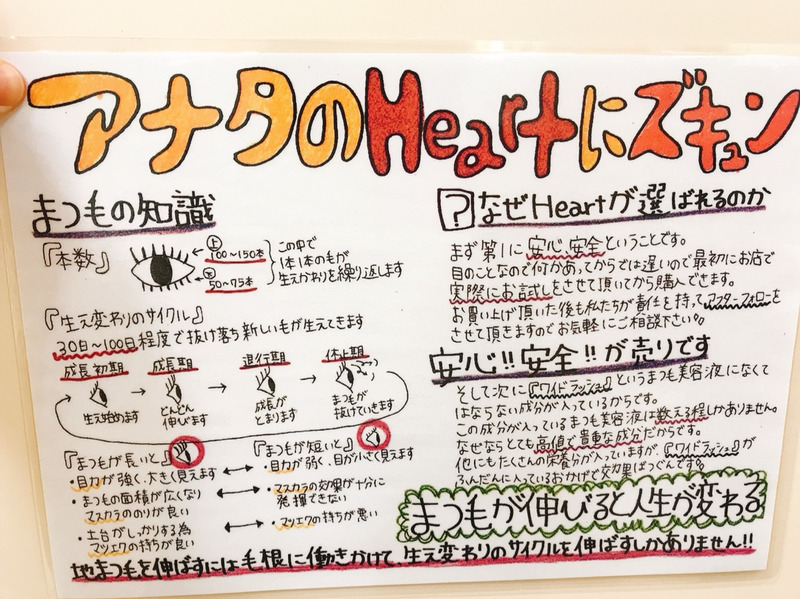 アナタのHeartにズキュン
まつもの知識
『本数』
㊤
100〜150本
㊦
50〜75本
この中で
1本1本のもが
生えかわりを繰り返します
『生え変わりのサイクル』
30日〜100日程度で抜け落ち新しいもが生えてきます
成長初期
成長期
退行期
休止期
生え始めます
どんどん
伸びます
成長が
とまります
まつもが
抜けていきます
『まつもが長いと』
・目力が強く、大きく見えます
・まつもの面積が広くなり
マスカラののりが良い
・土台がしっかりする為
マツエクの持ちが良い
『まつもが短いと』
・目力が弱く、目が小さく見えます
・マスカラの効果が十分に
発揮できない
・マツエクの持ちが悪い
?なぜHeartが選ばれるのか
まず第1に安心安全ということです。
目のことなので何かあってからでは遅いので最初にお店で
実際にお試しをさせて頂いてから購入できます。
お買い上げ頂いた後も私たちが責任を持ってアフターフォローを
させて頂きますのでお気軽にご相談下さい。
安心!!安全!!が売りです
そして次に『ワイドラッシュ』というまつも美容液になくて
はならない成分が入っているからです。
この成分が入っているまつも美容液は数える程しかありません。
なぜならとても高価で貴重な成分だからです。
他にもたくさんの栄養分が入っていますが、『ワイドラッシュ』が
ふんだんに入っているおかげで効果ばつぐんです。
まつもが伸びると人生が変わる
地まつもを伸ばすには毛根に働きかけて、生え変わりのサイクルを伸ばすしかありません!!